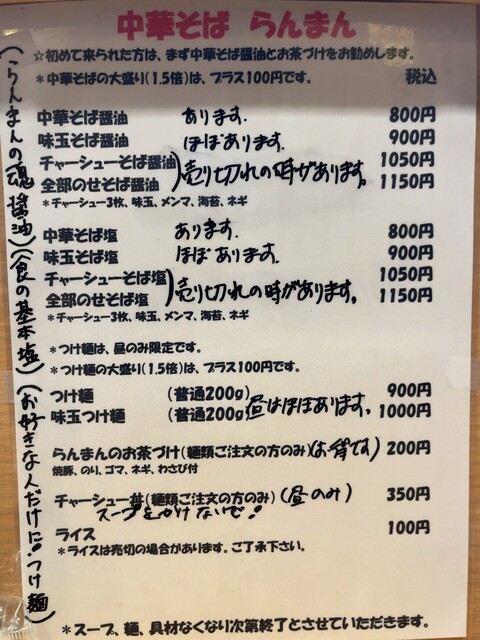 中華そば らんまん
☆初めて来られた方は、まず中華そば醤油とお茶づけをお勧めします。
＊中華そばの大盛り(1.5倍)は、プラス100円です。 税込
中華そば醤油 あります. 800円
味玉そば醤油 ほぼあります. 900円
チャーシューそば醤油 1050円
)売り切れの時があります。
全部のせそば醤油 1150円
＊チャーシュー3枚、味玉、メンマ、海苔、ネギ
中華そば塩 あります. 800円
味玉そば塩 ほぼあります. 900円
チャーシューそば塩 1050円
)売り切れの時があります。
全部のせそば塩 1150円
＊チャーシュー3枚、味玉、メンマ、海苔、ネギ
＊つけ麺は、昼のみ限定です。
＊つけ麺の大盛り(1.5倍)は、プラス100円です。
つけ麺 (普通200g) 900円
昼はほぼあります。
味玉つけ麺 (普通200g) 1000円
らんまんのお茶づけ(麺類ご注文の方のみ)(お得です) 200円
焼豚、のり、ゴマ、ネギ、わさび付
チャーシュー丼(麺類ご注文の方のみ)(昼のみ) 350円
スープをかけないで!
ライス 100円
＊ライスは売切の場合があります。ご了承下さい。
＊スープ、麺、具材なくなり次第終了とさせていただきます。
(らんまんの魂 醤油)(食の基本塩)(お好きな人だけに!つけ麺)